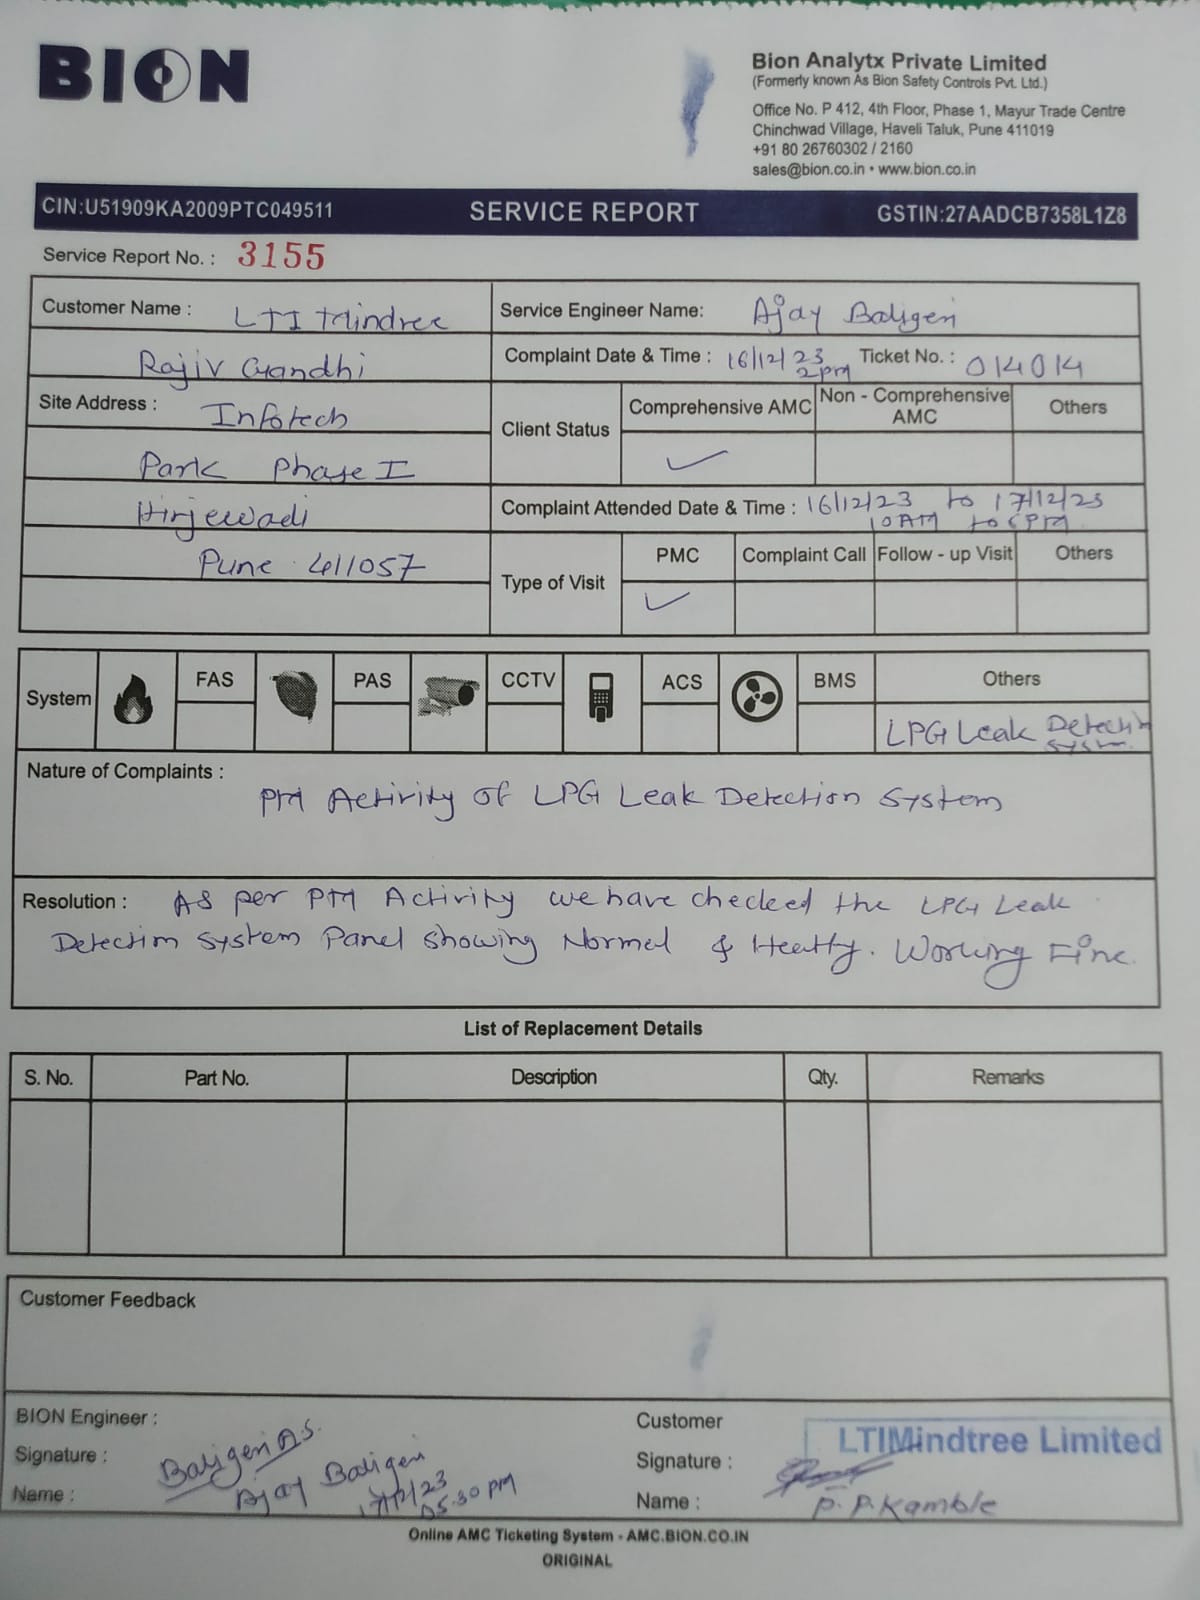 BION
Bion Analytx Private Limited
(Formerly known As Bion Safety Controls Pvt. Ltd.)
Office No. P 412, 4th Floor, Phase 1, Mayur Trade Centre
Chinchwad Village, Haveli Taluk, Pune 411019
+91 80 26760302 / 2160
sales@bion.co.in • www.bion.co.in
CIN:U51909KA2009PTC049511 SERVICE REPORT GSTIN:27AADCB7358L1Z8
Service Report No. : 3155
Customer Name : LTI Mindree
Rajiv Gandhi
Site Address : Infotech
Park Phase I
Hinjewadi
Pune 411057
Service Engineer Name: Ajay Baligeri
Complaint Date & Time : 16/12/23 2pm Ticket No. : 014014
Client Status
Comprehensive AMC Non - Comprehensive AMC Others
✓
Complaint Attended Date & Time : 16/12/23 to 17/12/23
10AM to 6PM
Type of Visit
PMC Complaint Call Follow - up Visit Others
✓
System FAS PAS CCTV ACS BMS Others
LPG Leak Detection System.
Nature of Complaints :
PM Activity of LPG Leak Detection System
Resolution : As per PM Activity we have checked the LPG Leak
Detection System Panel Showing Normal & Healty. Working Fine.
List of Replacement Details
S. No. Part No. Description Qty. Remarks
Customer Feedback
BION Engineer :
Signature : Baligeri A.S.
Name : Ajay Baligeri
17/12/23
05.30 pm
Customer
LTIMindtree Limited
Signature :
Name : P. P. Kamble
Online AMC Ticketing System - AMC.BION.CO.IN
ORIGINAL